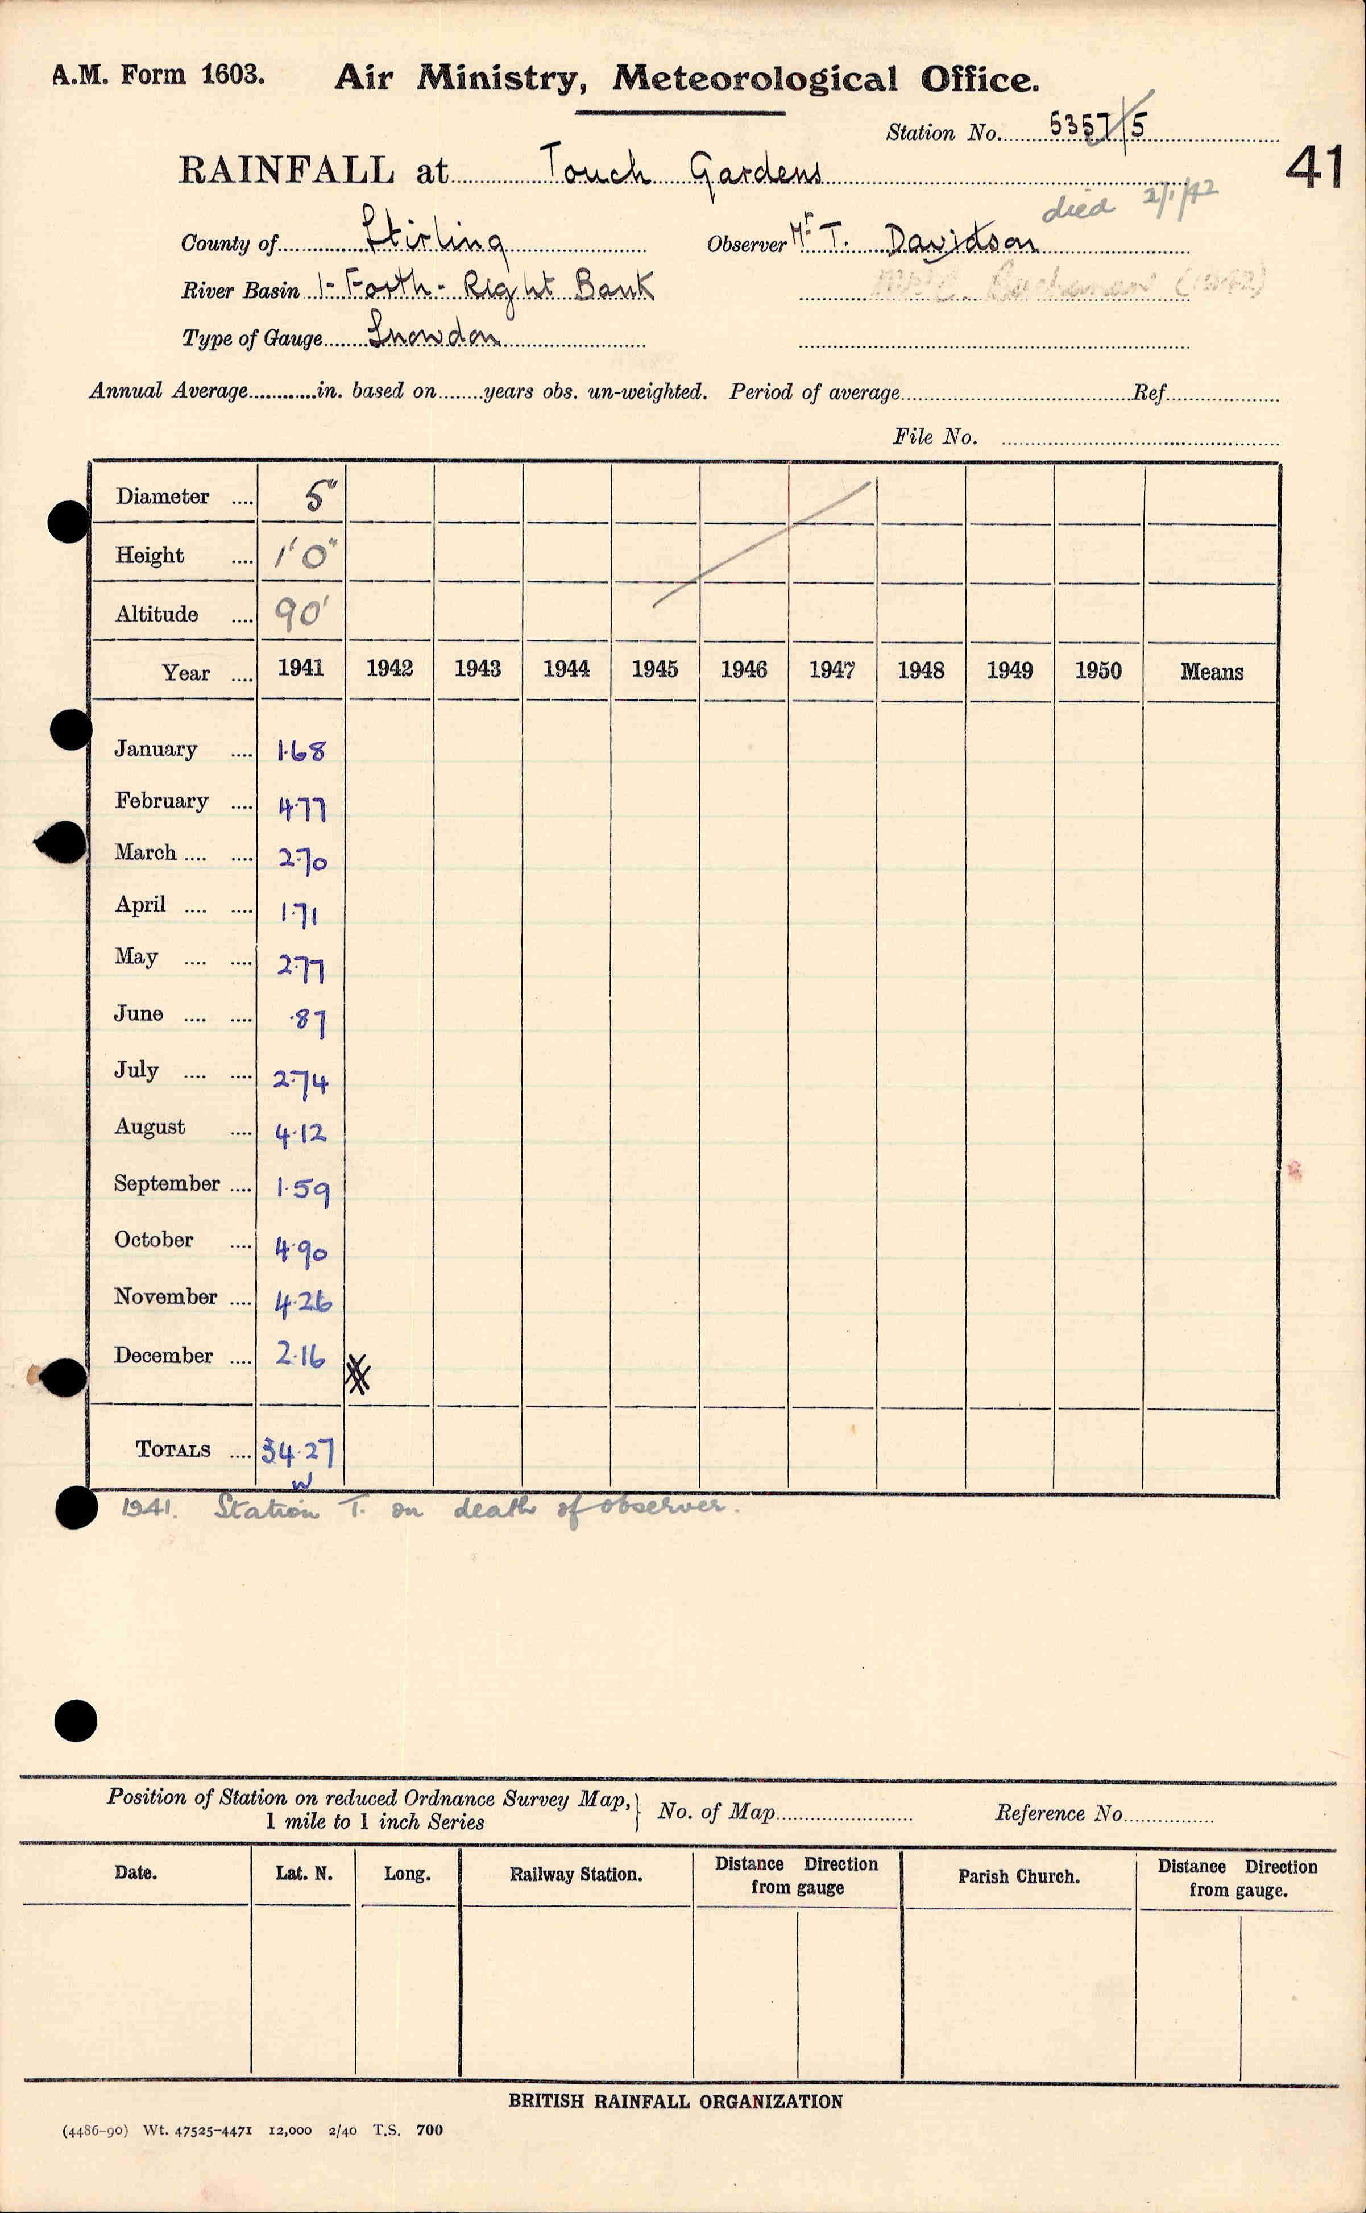 A.M. Form 1603. Air Ministry, Meteorological Office.
Station No. 5357/5
41
RAINFALL at Touch Gardens
died 2/1/42
County of Stirling Observer Mr T. Davidson
River Basin 1- Forth - Right Bank C. Buchanan (1942)
Type of Gauge Snowdon
Annual Average in. based on years obs. un-weighted. Period of average Ref.
File No.
Diameter 5"
Height 1'0"
Altitude 90'
Year 1941 1942 1943 1944 1945 1946 1947 1948 1949 1950 Means
January 1.68
February 4.77
March 2.70
April 1.71
May 2.77
June .87
July 2.74
August 4.12
September 1.59
October 4.90
November 4.26
December 2.16
TOTALS 34.27
w
1941. Station T. on death of observer.
Position of Station on reduced Ordnance Survey Map,
1 mile to 1 inch Series
No. of Map Reference No.
Date. Lat. N. Long. Railway Station. Distance Direction from gauge Parish Church. Distance Direction from gauge.
BRITISH RAINFALL ORGANIZATION
(4486-90) Wt. 47525-4471 12,000 2/40 T.S. 700